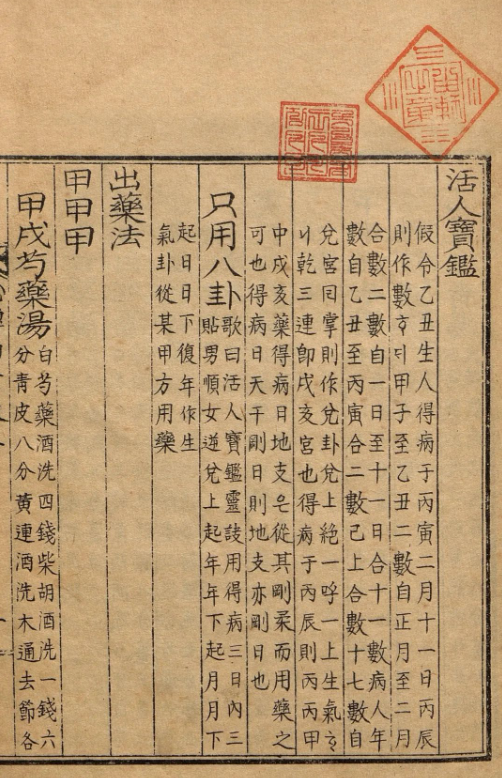 活人寶鑑
假令乙丑生人得病于丙寅二月十一日丙辰
則作數ᄒᆞ되甲子至乙丑二數自正月至二月
合數二數自一日至十一日合十一數病人年
數自乙丑至丙寅合二數已上合數十七數自
兌宮囘掌則作兌卦兌上絶一呼一上生氣ᄒᆞ
니乾三連卽戌亥宮也得病于丙辰則丙丙甲
中戌亥藥得病日地支은從其剛柔而用藥之
可也得病日天干剛日則地支亦剛日也
只用八卦
歌曰活人寶鑑靈用得病三日內三
貼男順女逆兌上起年年下起月月下
起日日下復年作生
氣卦從某甲方用藥
出藥法
甲甲甲
甲戌芍藥湯
白芍藥酒洗四錢柴胡酒洗一錢六
分青皮八分黃連酒洗木通去節各